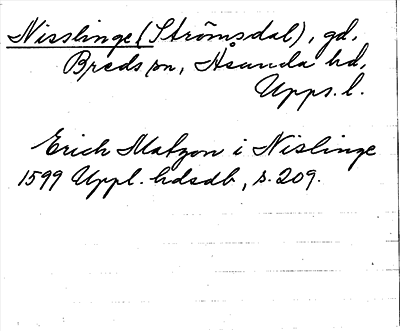 Nisslinge (Strömsdal), gd,
Breds sn, Åsunda hd,
Upps. l.
Erich Matzon i Nislinge
1599 Uppl. hdsdb, s. 209.